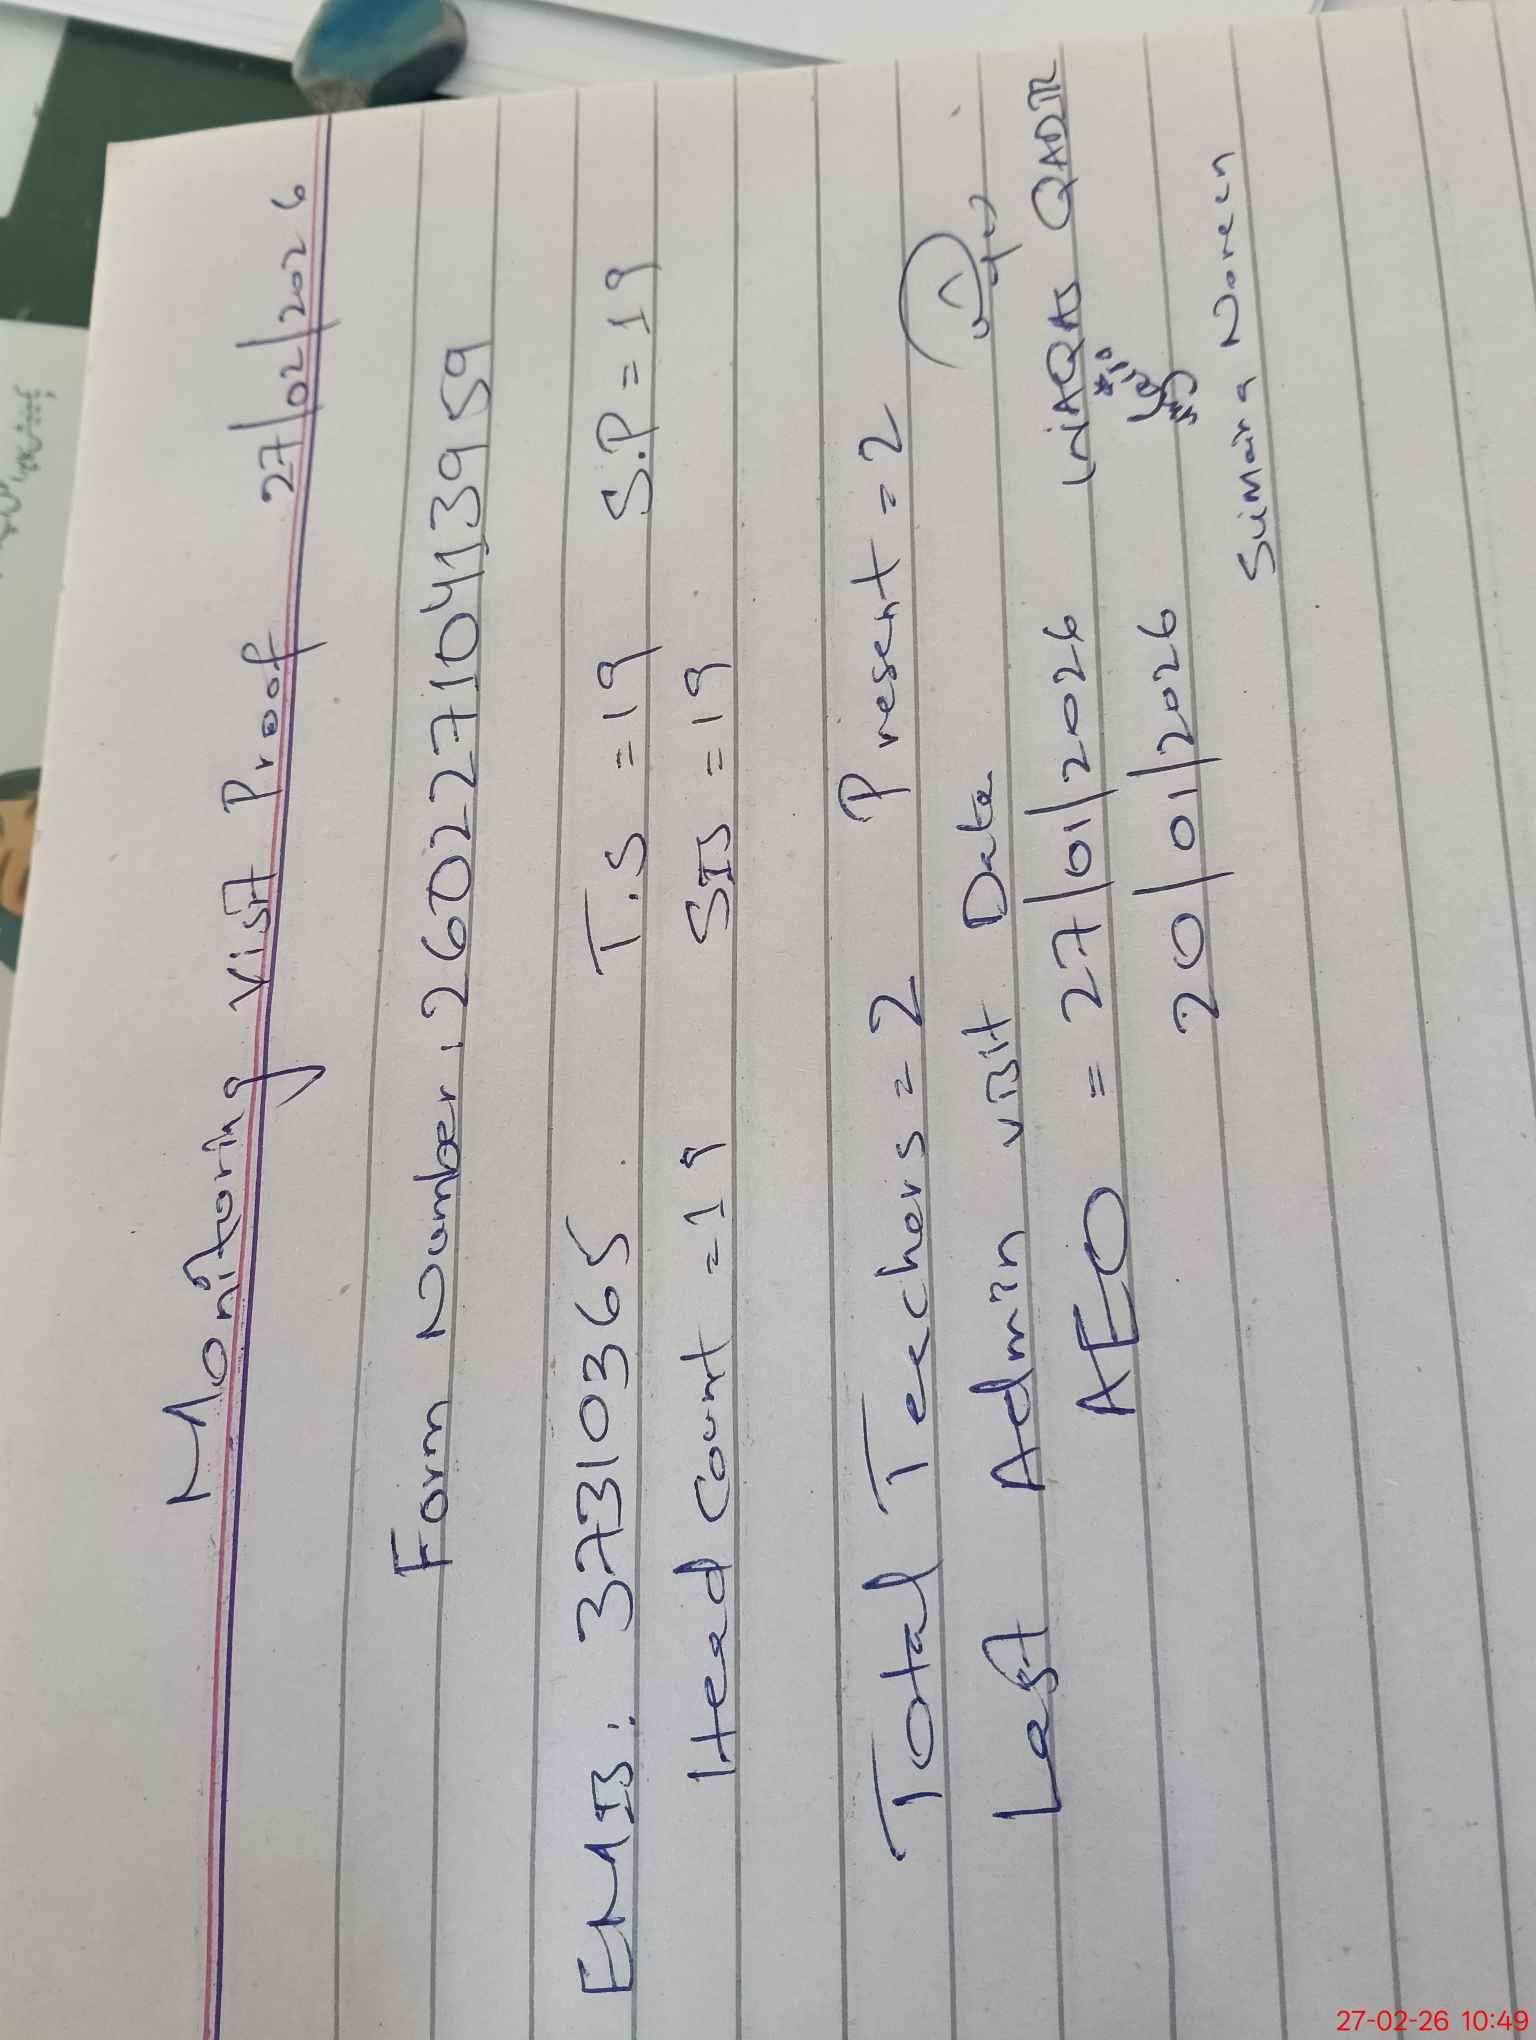 Monitoring Visit Proof 27/02/2026
Form Number: 26022710413959
EMIS: 37310365 T.S = 19 S.P = 19
Head Count = 19 SIS = 19
Total Teachers = 2 Present = 2
Last Admin visit Date
AEO = 27/01/2026 LIAQAS QADIR
20/01/2026
Sumaira Noreen
27-02-26 10:49